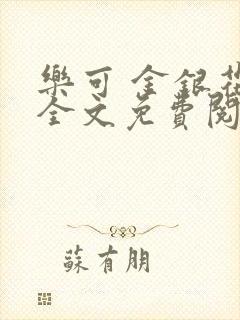 樂可 金銀花
全文免費閱
蘇有朋